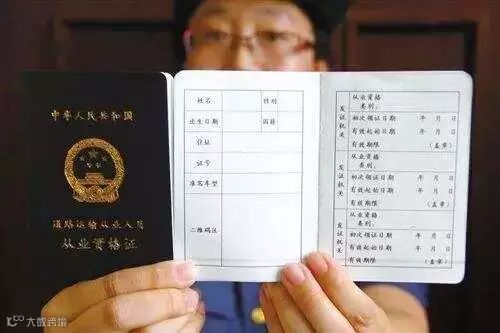 中华人民共和国
道路运输从业人员
从业资格证
姓名 性别
出生日期 国籍
住址
证号
准驾车型
二维码区
发证机关
从业资格
类别：
初次领证日期 年 月 日
有效起始日期 年 月 日
有效期限 （盖章）
发证机关
从业资格
类别：
初次领证日期 年 月 日
有效起始日期 年 月 日
有效期限 （盖章）
发证机关
从业资格
类别：
初次领证日期 年 月 日
有效起始日期 年 月 日
有效期限 （盖章）
大数跨境